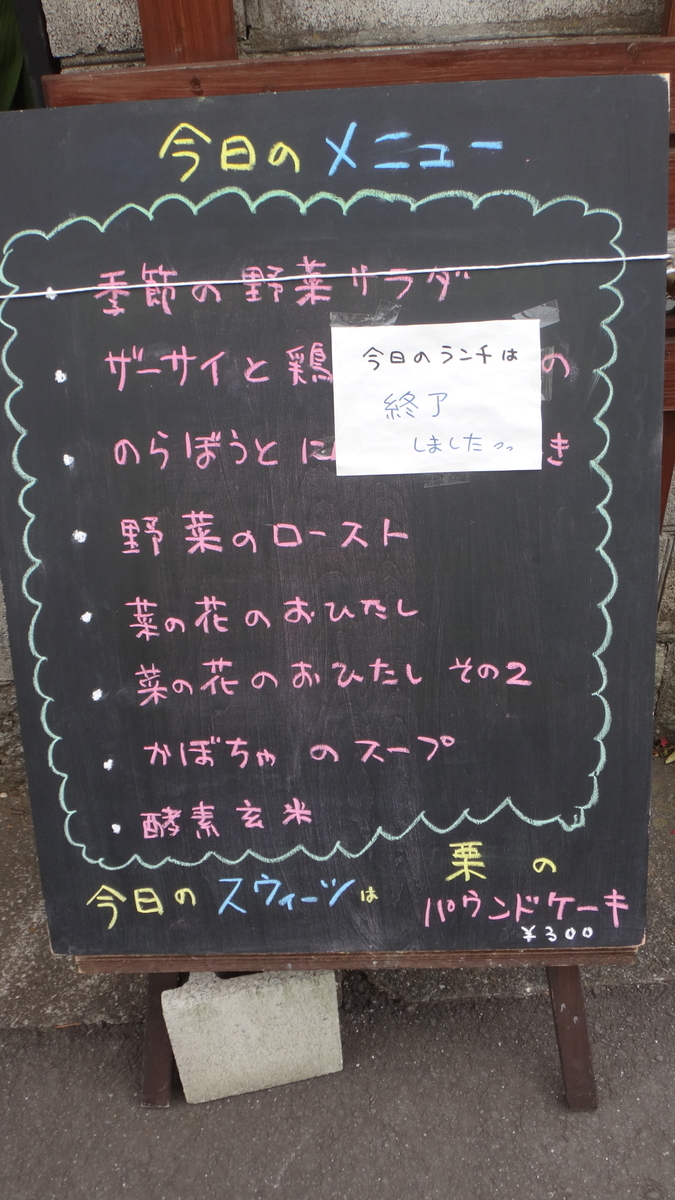 今日のメニュー
・季節の野菜サラダ
・ザーサイと鶏 の
・のらぼうと に き
・野菜のロースト
・菜の花のおひたし
・菜の花のおひたし その2
・かぼちゃのスープ
・酵素玄米
今日のランチは
終了
しました
今日のスウィーツは
栗の
パウンドケーキ
¥300